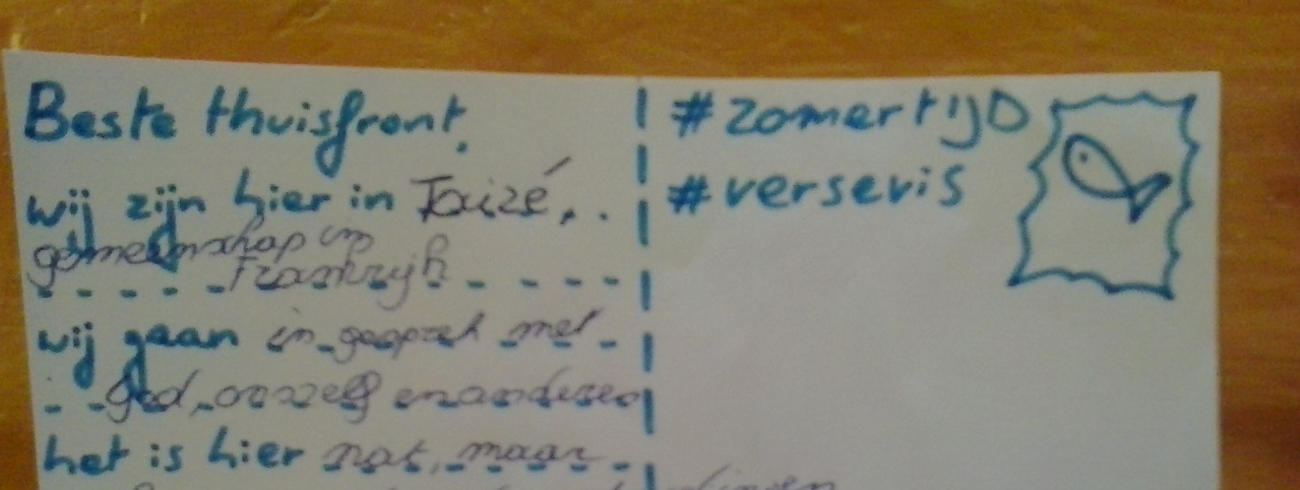 Beste thuisfront,
wij zijn hier in Taizé,
gemeenschap in
Frankrijk
wij gaan in gesprek met
God, onszelf en anderen
het is hier nat, maar
#zomertijD
#versevis